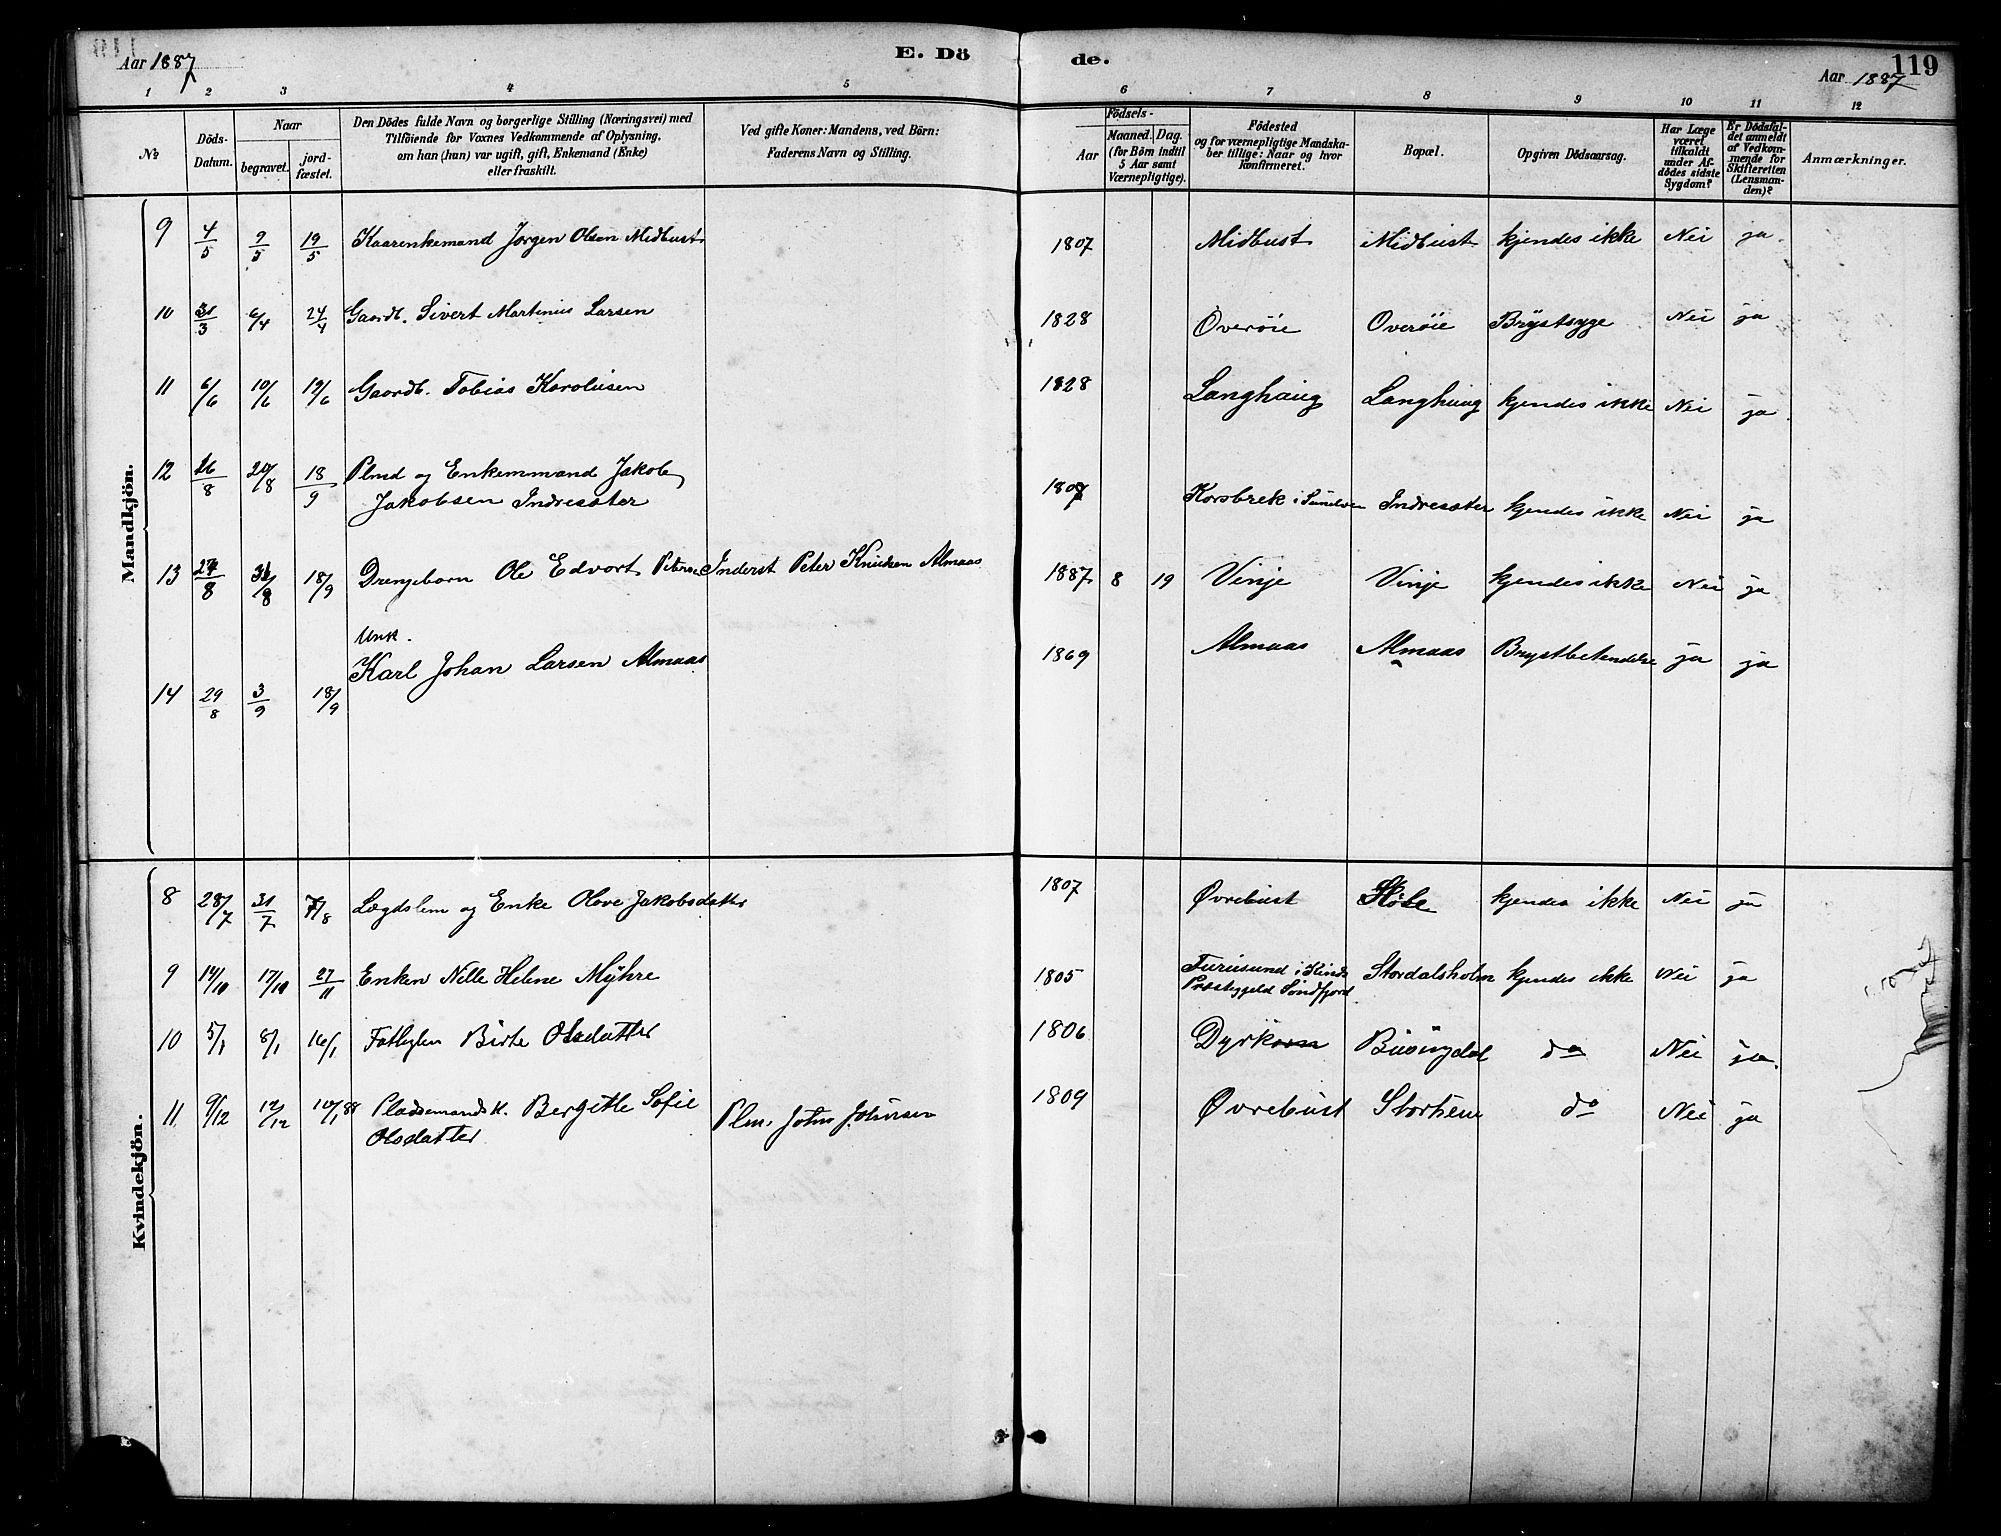 Aar 1887
E. Dö
de.
119
Aar 1887
1 2 3 4 5 6 7 8 9 10 11 12
No
Döds-
Datum.
Naar
begravet.
jord-
fæstet.
Den Dödes fulde Navn og borgerlige Stilling (Næringsvei) med
Tilföiende for Voxnes Vedkommende af Oplysning,
om han (hun) var ugift, gift, Enkemand (Enke)
eller fraskilt.
Ved gifte Koner: Mandens, ved Börn:
Faderens Navn og Stilling.
Födsels-
Aar
Maaned. Dag.
(for Börn indtil
5 Aar samt
Værnepligtige).
Födested
og for værnepligtige Mandska-
ber tillige: Naar og hvor
konfirmeret.
Bopæl.
Opgiven Dödsaarsag.
Har Læge
været
tilkaldt
under Af-
dödes sidste
Sygdom?
Er Dödsfal-
det anmeldt
af Vedkom-
mende for
Skifteretten
(Lensman-
den)?
Anmærkninger.
Mandkjön.
9 4/5 9/5 19/5 Kaarenkemand Jørgen Olsen Midbust 1807 Midbust Midbust kjendes ikke Nei ja
10 31/3 6/4 24/4 Gaardb. Sivert Martinus Larsen 1828 Overöie Overöie Brystsyge Nei ja
11 6/6 10/6 19/6 Gaardb. Tobias Karolusen 1828 Langhaug Langhaug kjendes ikke Nei ja
12 16/8 20/8 18/9 Plmd og Enkemmand Jakob
Jakobsen Indresæter 1807 Korsbrek i Sunelven Indresæter kjendes ikke Nei ja
13 27/8 31/8 18/9 Drengebarn Ole Edvart Petersen Inderst Peter Knudsen Almaas 1887 8 19 Vinje Vinje kjendes ikke Nei ja
14 29/8 3/9 18/9 Unk.
Karl Johan Larsen Almaas 1869 Almaas Almaas Brystbetendelse ja ja
Kvindekjön.
8 28/7 31/7 7/8 Lægdslem og Enke Olave Jakobsdatter 1807 Øvrebust kjendes ikke Nei ja
9 14/10 17/10 27/11 Enken Nille Helene Myhre 1805 Furusund i Kinds
Præstegjeld Søndfjord Stordalsholm kjendes ikke Nei ja
10 5/1 8/1 16/1 Fattiglem Birte Olsdatter 1806 Dyrkorn Busingdal do Nei ja
11 9/12 12/12 10/1 88 Pladsemandsk. Bergitte Sofie
Olsdatter Plm. John Johnsen 1809 Øvrebust Storheim do Nei ja